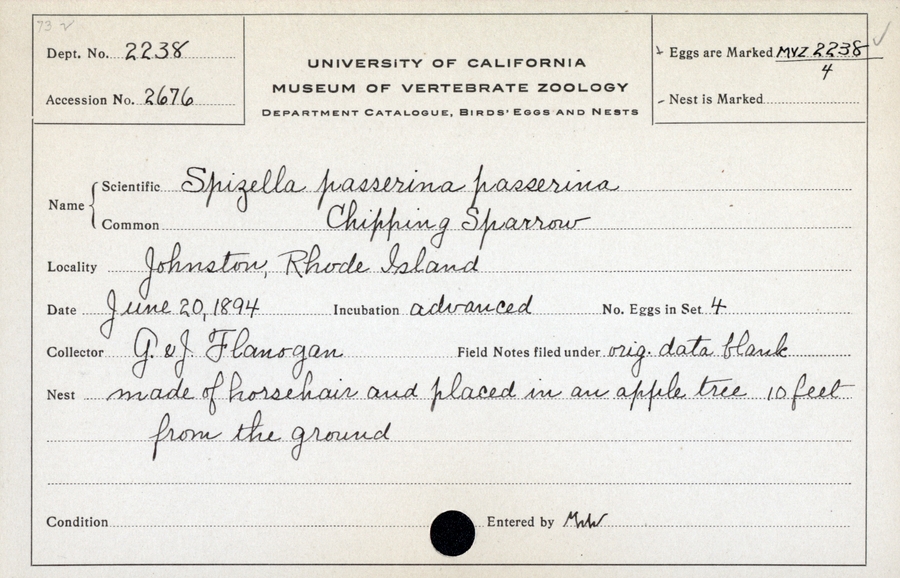 73
Dept. No. 2238
Accession No. 2676
UNIVERSITY OF CALIFORNIA
MUSEUM OF VERTEBRATE ZOOLOGY
DEPARTMENT CATALOGUE, BIRDS' EGGS AND NESTS
Eggs are Marked MVZ 2238
4
Nest is Marked
Name { Scientific Spizella passerina passerina
Common Chipping Sparrow
Locality Johnston, Rhode Island
Date June 20, 1894 Incubation advanced No. Eggs in Set 4
Collector G. & J. Flanogan Field Notes filed under orig. data blank
Nest made of horsehair and placed in an apple tree 10 feet
from the ground
Condition Entered by